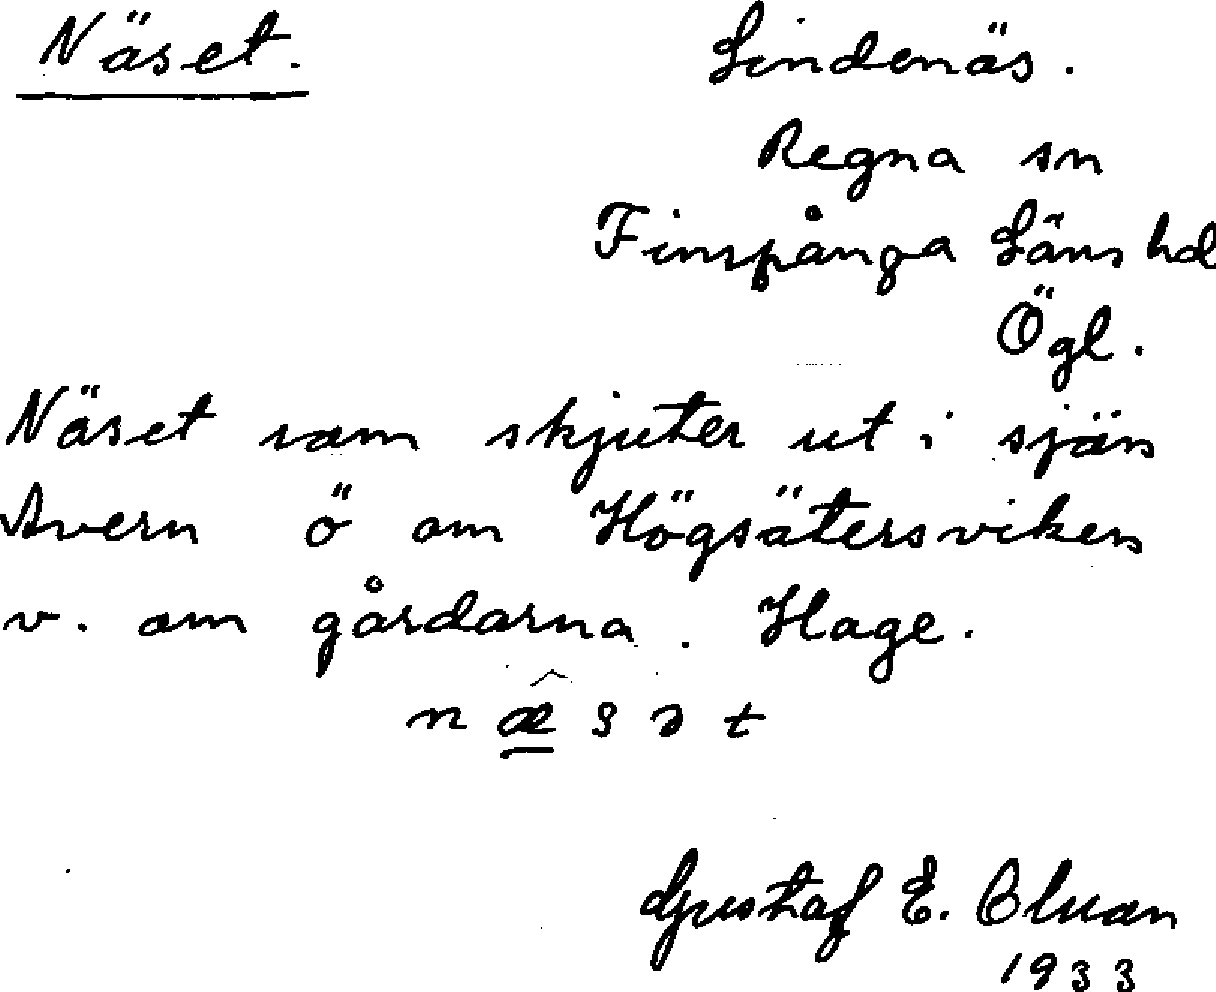 Näset. Lindenäs.
Regna sn
Finspånga Läns hd
Ögl.
Näset som skjuter ut i sjön
Avern ö om Högsätersviken
v. om gårdarna. Hage.
n æ̲̂ s ə t
Gustaf E.
1933